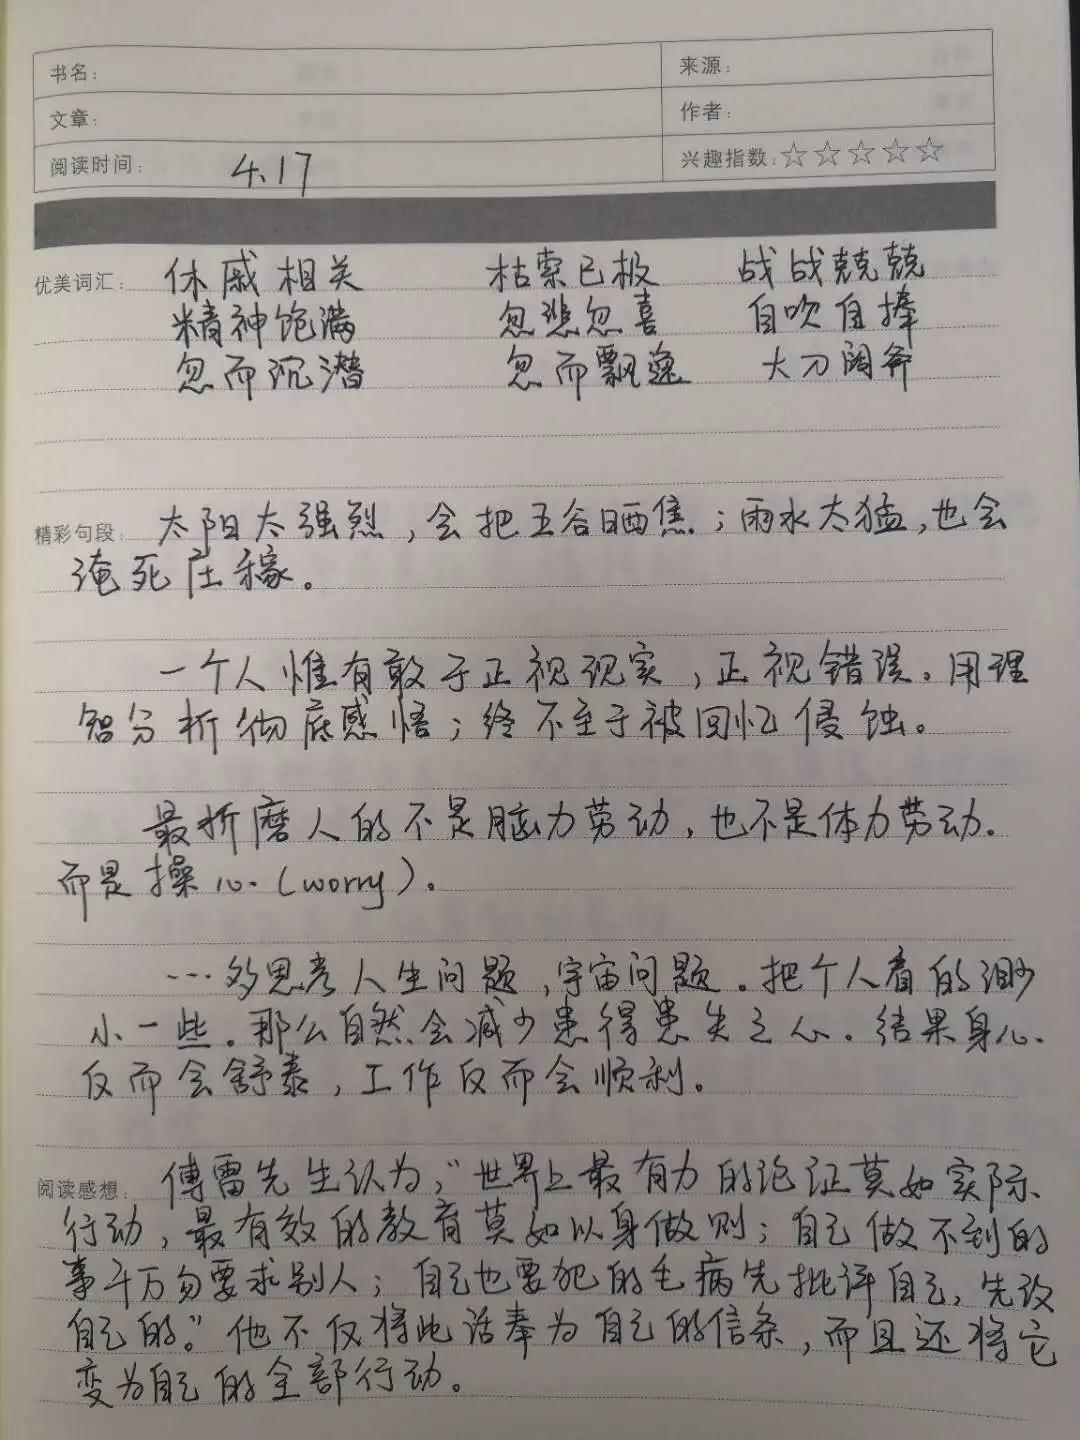 书名： 来源：
文章： 作者：
阅读时间： 4.17 兴趣指数:☆☆☆☆☆
优美词汇： 休戚相关 枯索已极 战战兢兢
精神饱满 忽悲忽喜 自吹自捧
忽而沉潜 忽而飘逸 大刀阔斧
精彩句段： 太阳太强烈，会把五谷晒焦；雨水太猛，也会
淹死庄稼。
一个人惟有敢于正视现实，正视错误。用理
智分析彻底感悟；终不至于被回忆侵蚀。
最折磨人的不是脑力劳动，也不是体力劳动.
而是操心.（worry）。
…多思考人生问题，宇宙问题。把个人看的渺
小一些。那么自然会减少患得患失之心。结果身心
反而会舒泰，工作反而会顺利。
阅读感想： 傅雷先生认为，“世界上最有力的论证莫如实际
行动，最有效的教育莫如以身做则；自己做不到的
事千万勿要求别人；自己也要犯的毛病先批评自己，先改
自己的。”他不仅将此话奉为自己的信条，而且还将它
变为自己的全部行动。